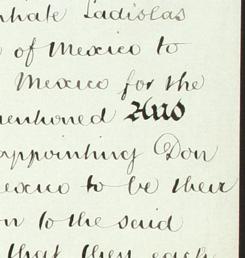 Ladislas
of Mexico to
Mexico for the
mentioned And
appointing Don
Mexico to be their
on to the said
that they each